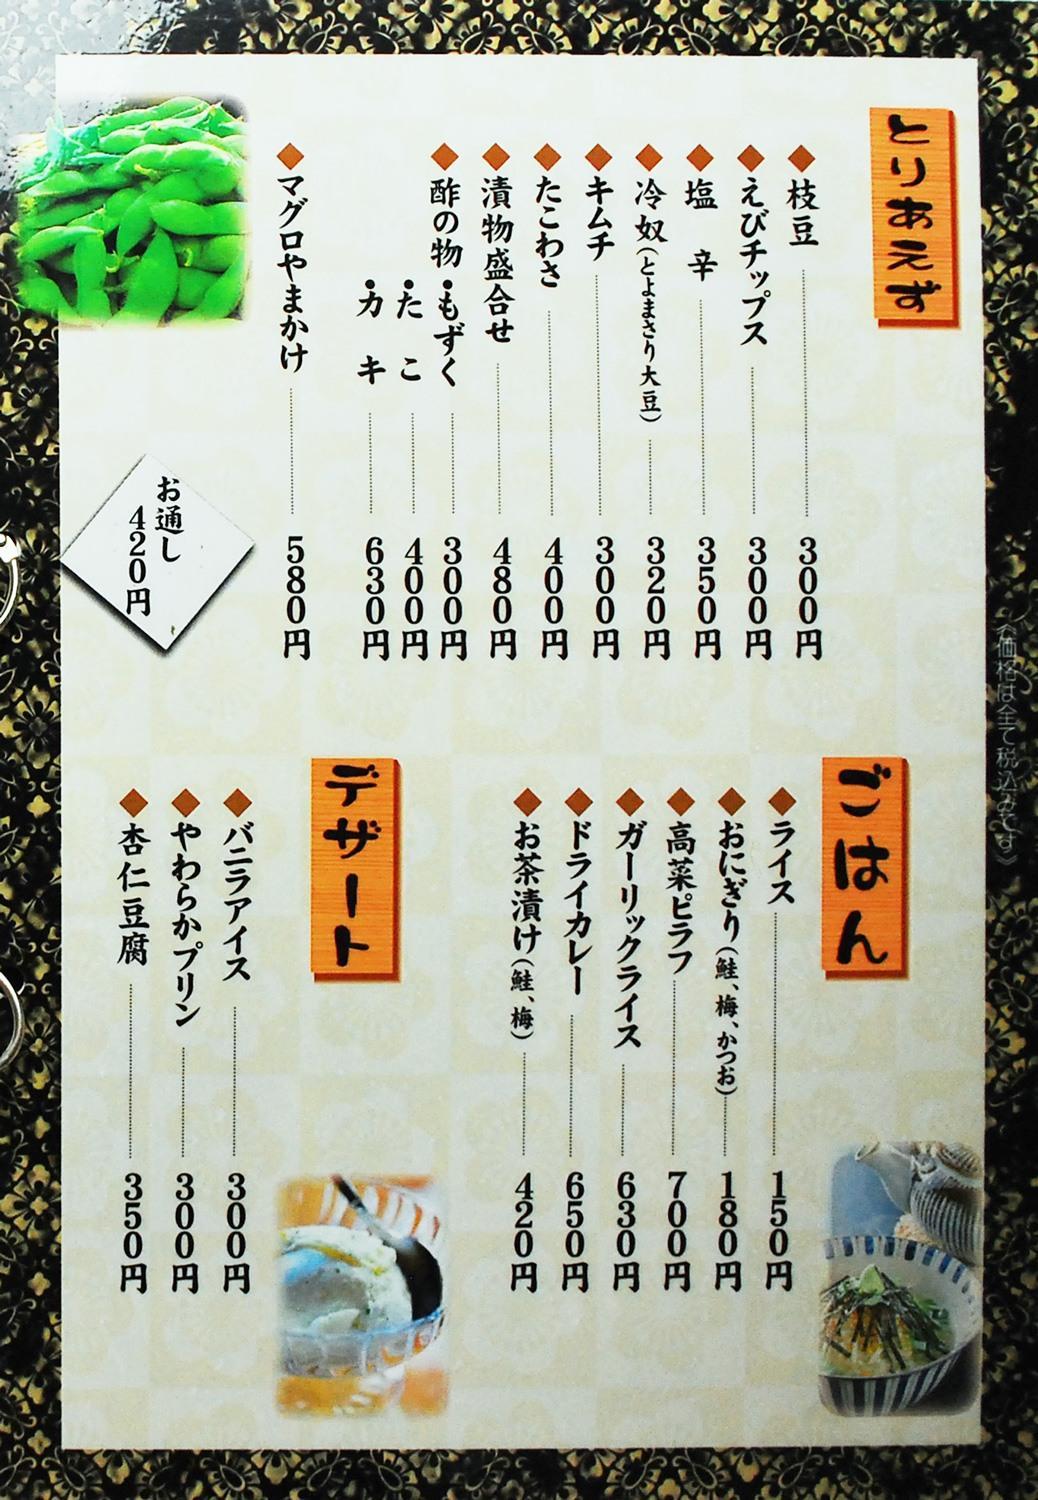 とりあえず
枝豆 300円
えびチップス 300円
塩辛 350円
冷奴(とよまさり大豆) 320円
キムチ 300円
たこわさ 400円
漬物盛合せ 480円
酢の物・もずく 300円
・たこ 400円
・カキ 630円
マグロやまかけ 580円
お通し
420円
ごはん
ライス 150円
おにぎり(鮭、梅、かつお) 180円
高菜ピラフ 700円
ガーリックライス 630円
ドライカレー 650円
お茶漬け(鮭、梅) 420円
デザート
バニラアイス 300円
やわらかプリン 300円
杏仁豆腐 350円
《価格は全て税込みです》